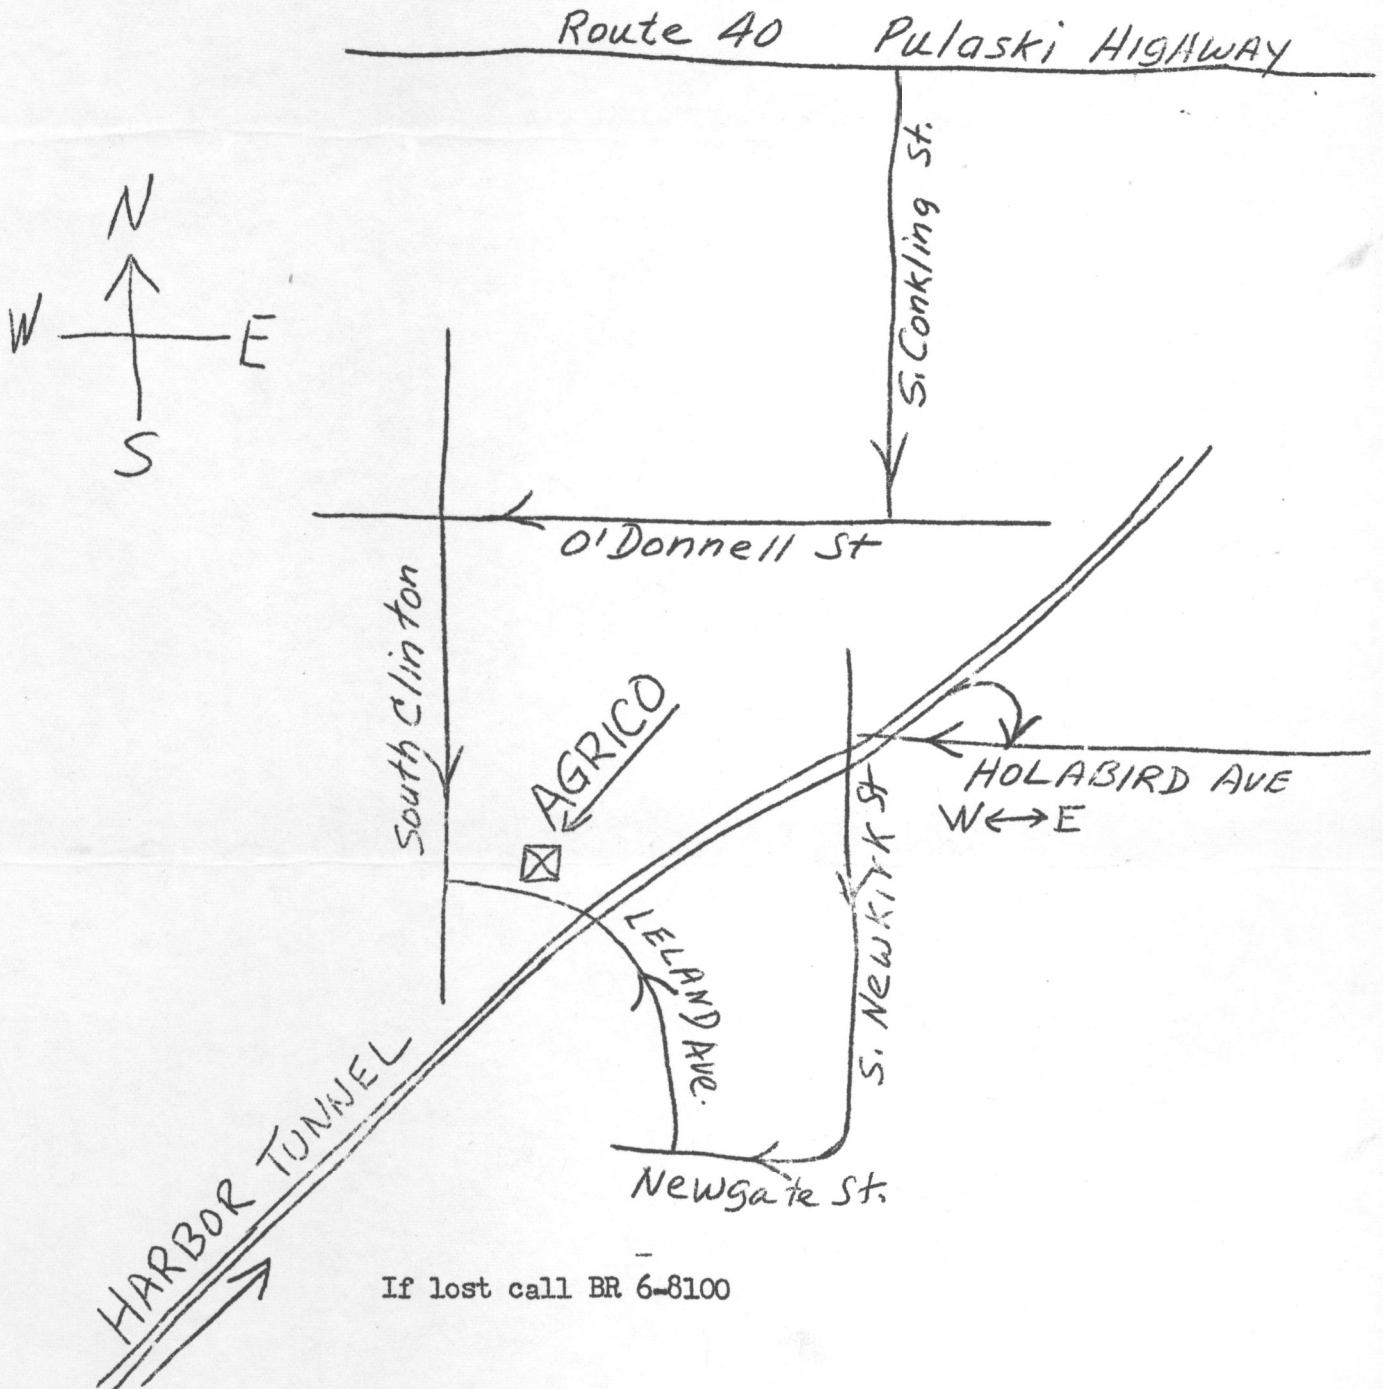 Route 40 Pulaski HIGHWAY
S. Conkling St.
N
W E
S
O'Donnell St
South Clinton
AGRICO
HOLABIRD AVE
W↔E
S. Newkirk St
LELAND AVE.
HARBOR TUNNEL
Newgate St.
If lost call BR 6-8100